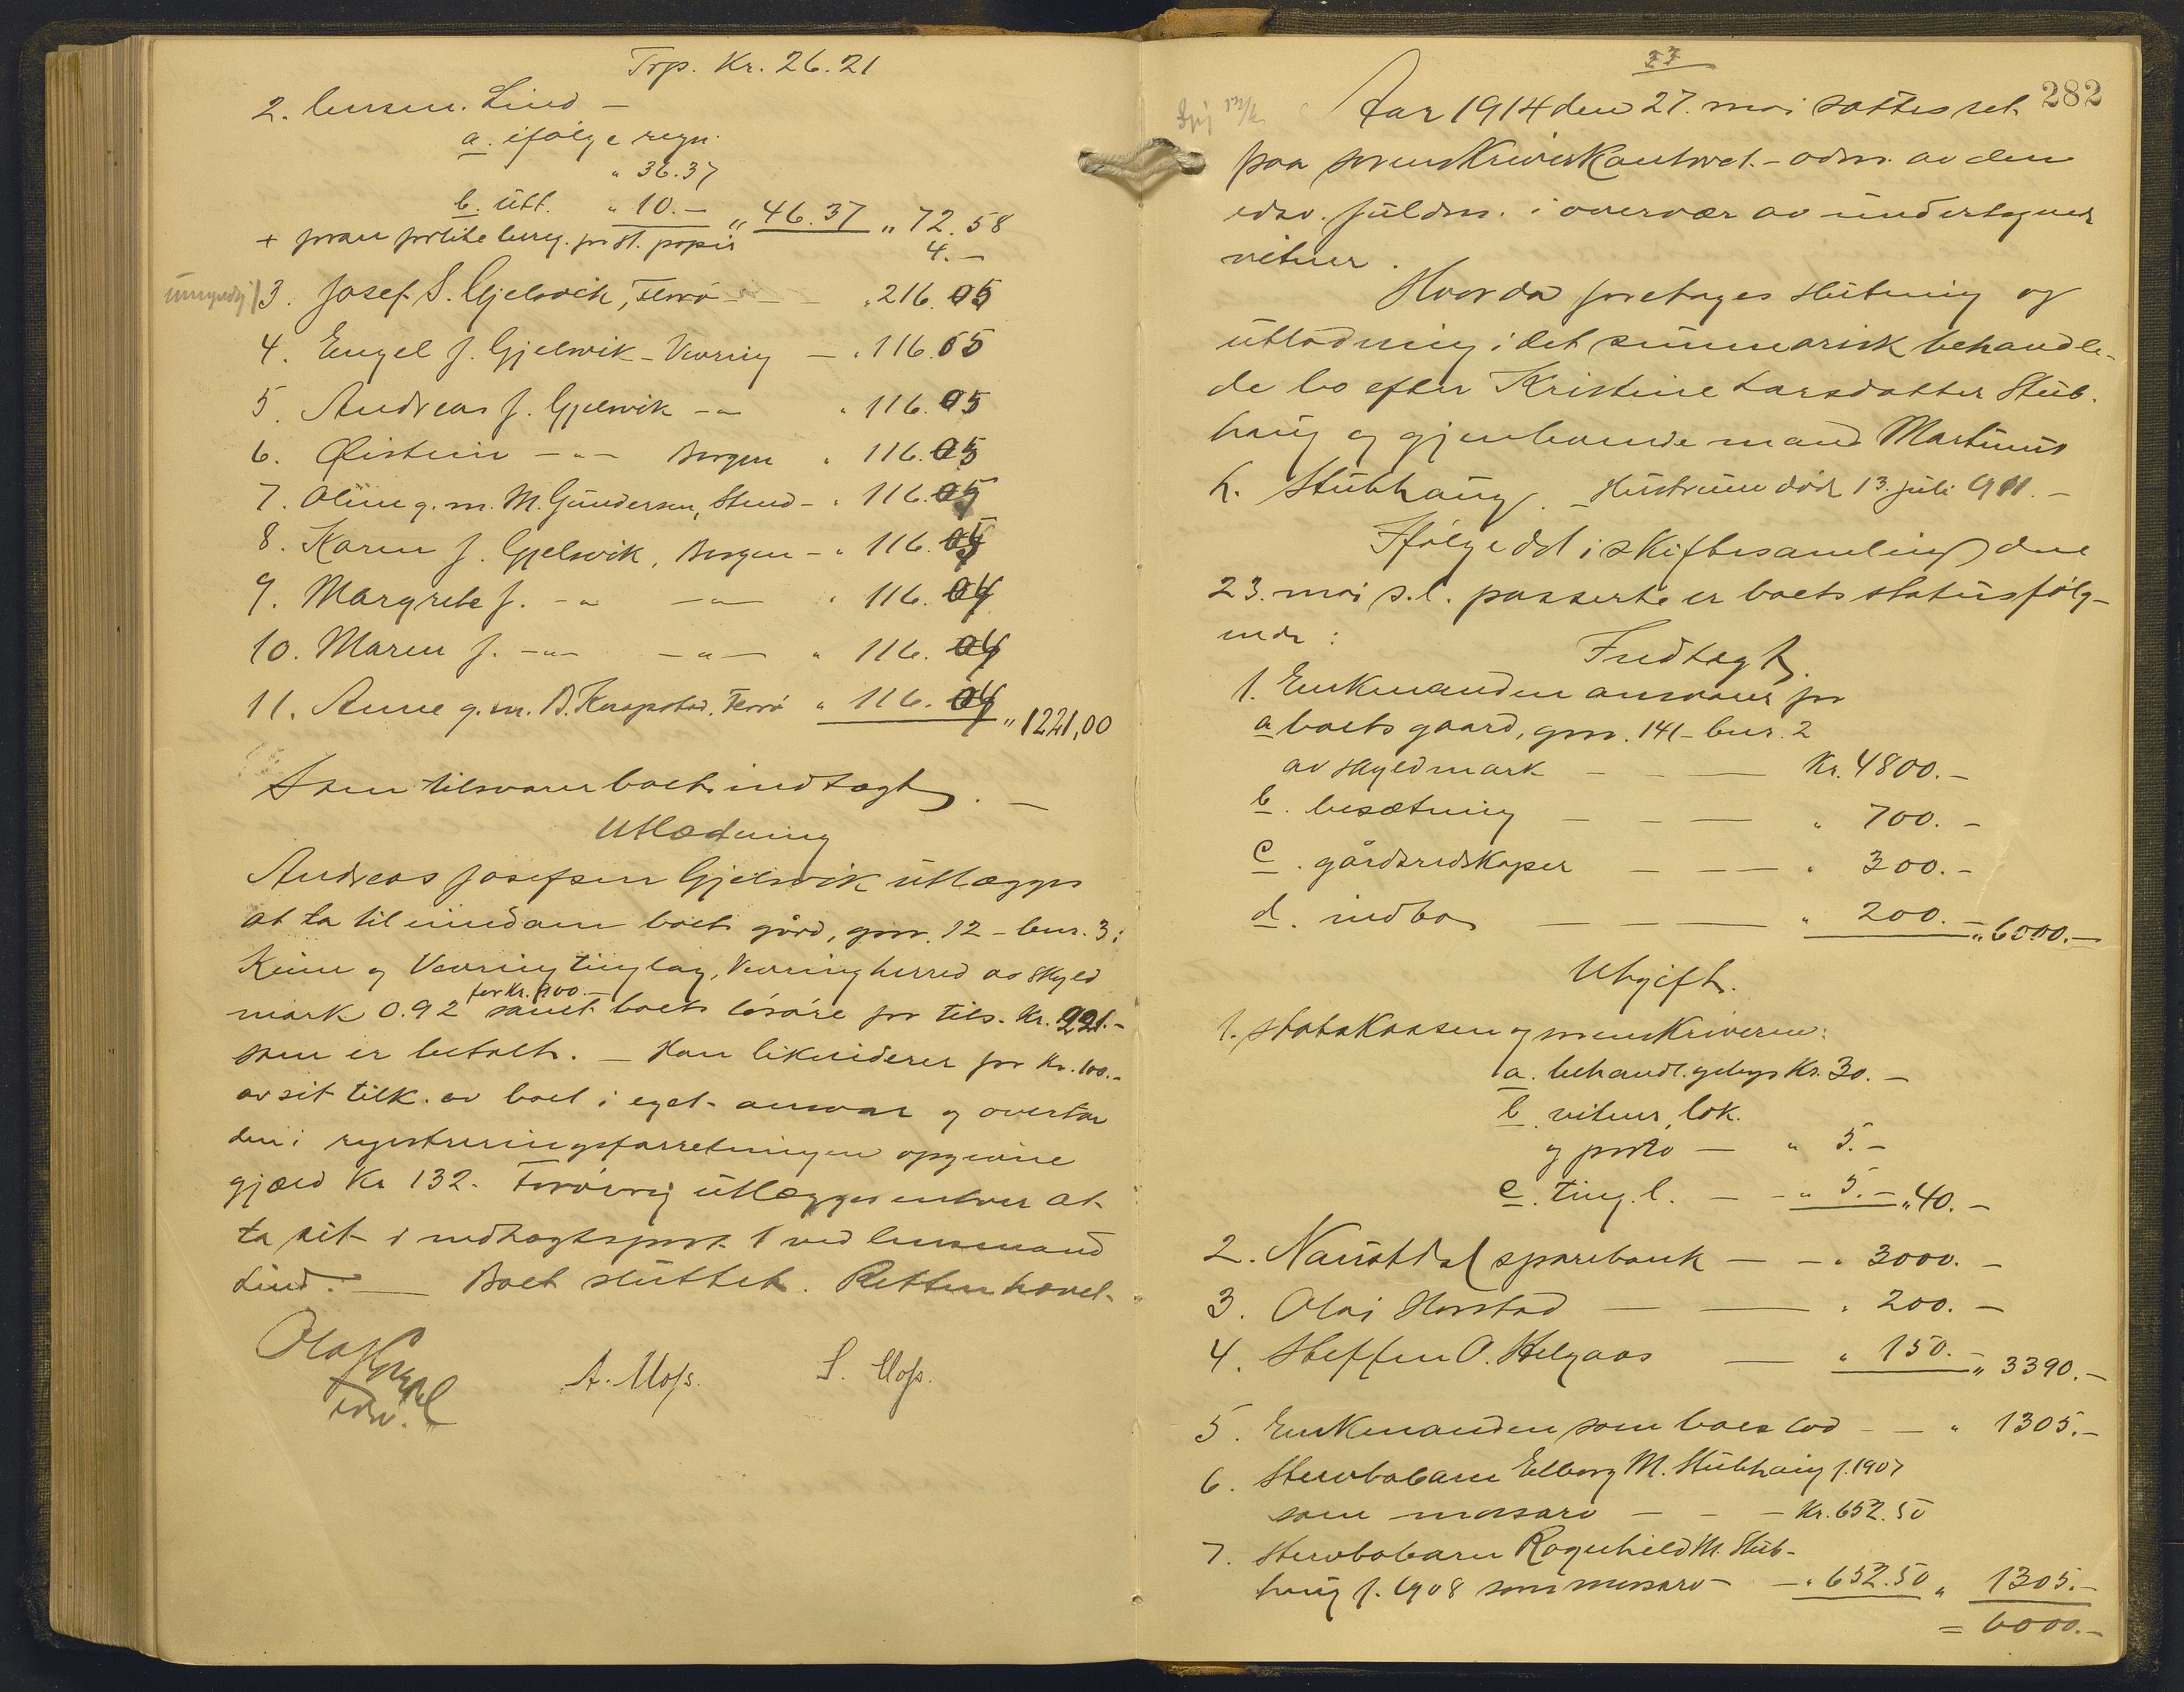 Trp. Kr. 26.21
2. lensm. Lind –
a. ifølge regn.
" 36.37
b. utl. " 10.– " 46.37 " 72.58
+ foran st. papir 4.–
3. Josef S. Gjelsvik, Florø – – " 216.05
4. Engel J. Gjelsvik – Vevring – " 116.05
5. Andreas J. Gjelsvik – " – " 116.05
6. Øistein – " – Bergen " 116.05
7. Oline g. m. M. Gundersen, Stend – " 116.05
8. Karen J. Gjelsvik, Bergen – " 116.05
9. Margrete J. – " – " – " 116.04
10. Maren J. – " – – " – " 116.04
11. Anne g. m. B. Knapstad, Florø " 116.04 " 1221,00
Som tilsvarer boets indtægt. –
Utlodning
Andreas Josefsen Gjelsvik utlægges
at ta til eiendom boets gård, gnr. 12 – bnr. 3 i
Kinn og Vevring tinglag, Vevring herred av skyld
for Kr. 900.–
mark 0.92 samt boets løsøre for tils. Kr. 221.–
som er betalt. – Han likviderer for Kr. 100.–
av sit tilk. av boet i eget ansvar og overtar
den i registreringsforretningen opgivne
gjæld Kr 132. Forøvrig utlægges enhver at
ta sit i indtægtspost 1 ved lensmand
Lind. – Boet sluttet. Retten hævet.
A. Moss. S. Moss.
27
282
Aar 1914 den 27. mai sattes ret
paa sorenskriverkontoret – adm. av den
edsv. fuldm. i overvær av undertegnede
vitner.
Hvorda foretages slutning og
utlodning i det summarisk behandle-
de bo efter Kristine Larsdatter Stub-
haug og gjenlevende mand Martinus
L. Stubhaug. – Hustruen død 13. juli 1911. –
Ifølge det i skiftesamling den
23. mai s. l. passerte er boets status følg-
ende:
Indtægt.
1. Enkemanden ansvarer for
a boets gaard, gnr. 141 – bnr. 2
av skyldmark – – – Kr. 4800.–
b. besætning – – – " 700.–
c. gårdsredskaper – – – " 300.–
d. indbo – – – " 200.– " 6000.–
Utgift.
1. Statskassen og sorenskriveren:
a. behandl. gebyr Kr. 30.–
b. vitner, lok.
og porto – " 5.–
c. ting. l. – – " 5.– " 40.–
2. Naustdal sparebank – – " 3000.–
3. Olai Horstad – – " 200.–
4. Steffen O. Helgaas – " 150.– " 3390.–
5. Enkemanden som boeslod – – " 1305.–
6. Stervbobarn Elborg M. Stubhaug f. 1907
som morsarv – – – Kr. 652.50
7. Stervbobarn Ragnhild M. Stub-
haug f. 1908 som morsarv – – " 652.50 " 1305.–
= 6000.–